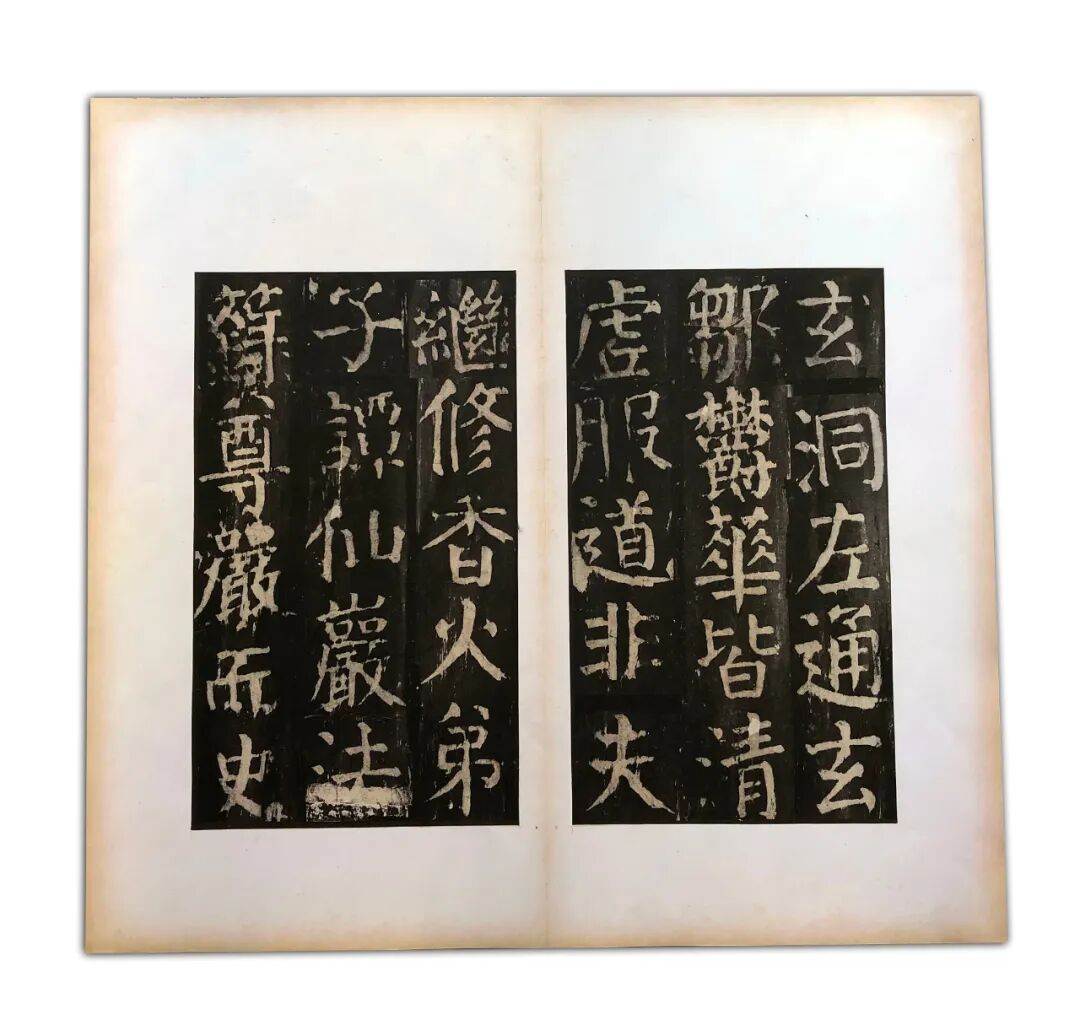 玄洞左通玄
鄒鬱華皆清
虛服道非夫
繼修香火弟
子譚仙巖法
尊嚴而史